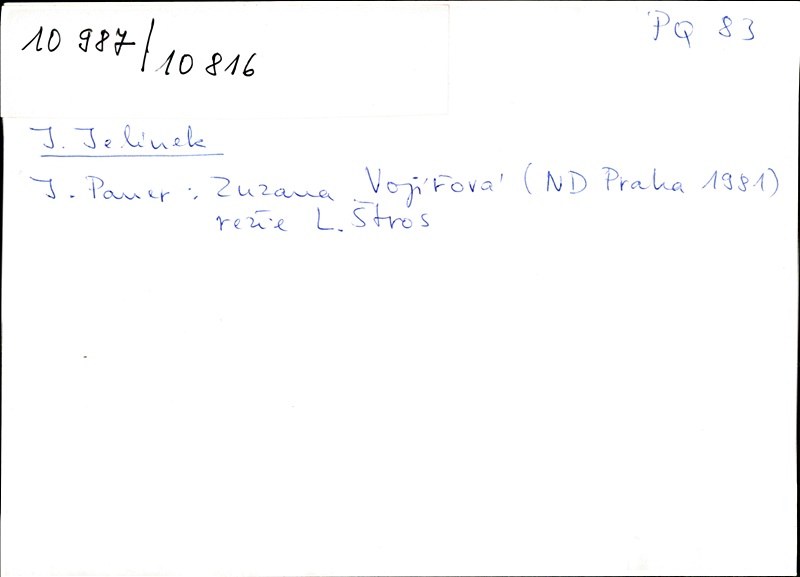 10 987/10 816
PQ 83
J. Jelínek
J. Pauer : Zuzana Vojířová (ND Praha 1981)
režie L. Štros